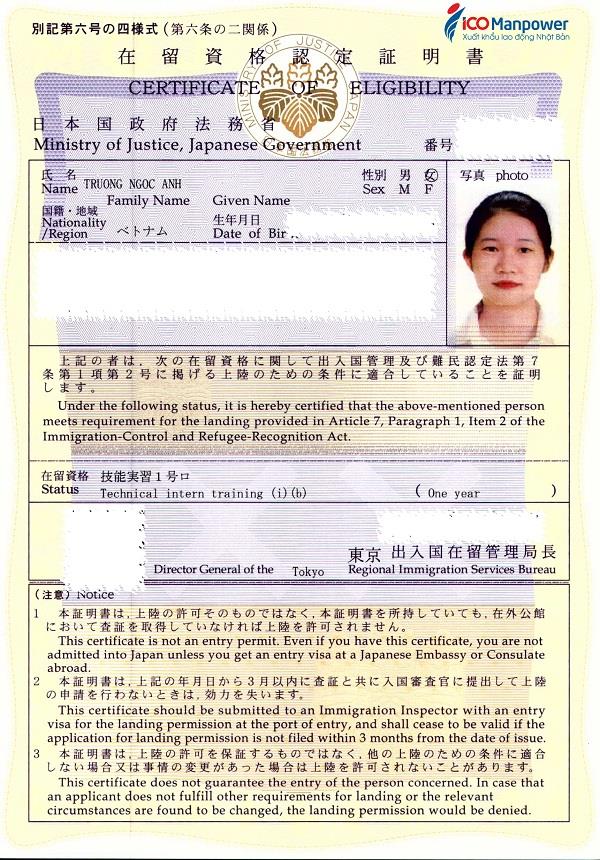 別記第六号の四様式（第六条の二関係）
ICO Manpower
Xuất khẩu lao động Nhật Bản
在留資格認定証明書
MINISTRY OF JUSTICE JAPAN
CERTIFICATE OF ELIGIBILITY
日本国政府法務省
Ministry of Justice, Japanese Government 番号
氏 名 性別 男 女 写真 photo
Name TRUONG NGOC ANH Sex M F
Family Name Given Name
国籍・地域 生年月日
Nationality ベトナム Date of Bir
/Region
上記の者は，次の在留資格に関して出入国管理及び難民認定法第７
条第１項第２号に掲げる上陸のための条件に適合していることを証明
します。
Under the following status, it is hereby certified that the above-mentioned person
meets requirement for the landing provided in Article 7, Paragraph 1, Item 2 of the
Immigration-Control and Refugee-Recognition Act.
在留資格 技能実習１号ロ
Status Technical intern training (i)(b) ( One year )
東京 出入国在留管理局長
Director General of the Tokyo Regional Immigration Services Bureau
（注意）Notice
1 本証明書は，上陸の許可そのものではなく，本証明書を所持していても，在外公館
において査証を取得していなければ上陸を許可されません。
This certificate is not an entry permit. Even if you have this certificate, you are not
admitted into Japan unless you get an entry visa at a Japanese Embassy or Consulate
abroad.
2 本証明書は，上記の年月日から３月以内に査証と共に入国審査官に提出して上陸
の申請を行わないときは，効力を失います。
This certificate should be submitted to an Immigration Inspector with an entry
visa for the landing permission at the port of entry, and shall cease to be valid if the
application for landing permission is not filed within 3 months from the date of issue.
3 本証明書は，上陸の許可を保証するものではなく，他の上陸のための条件に適合
しない場合又は事情の変更があった場合は上陸を許可されないことがあります。
This certificate does not guarantee the entry of the person concerned. In case that
an applicant does not fulfill other requirements for landing or the relevant
circumstances are found to be changed, the landing permission would be denied.